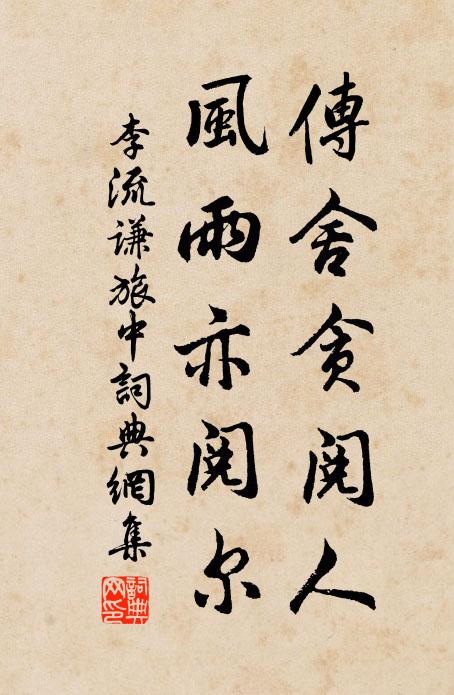 傳舍貪閱人
風雨亦閱尔
李流謙旅中詞典網集
詞典网印